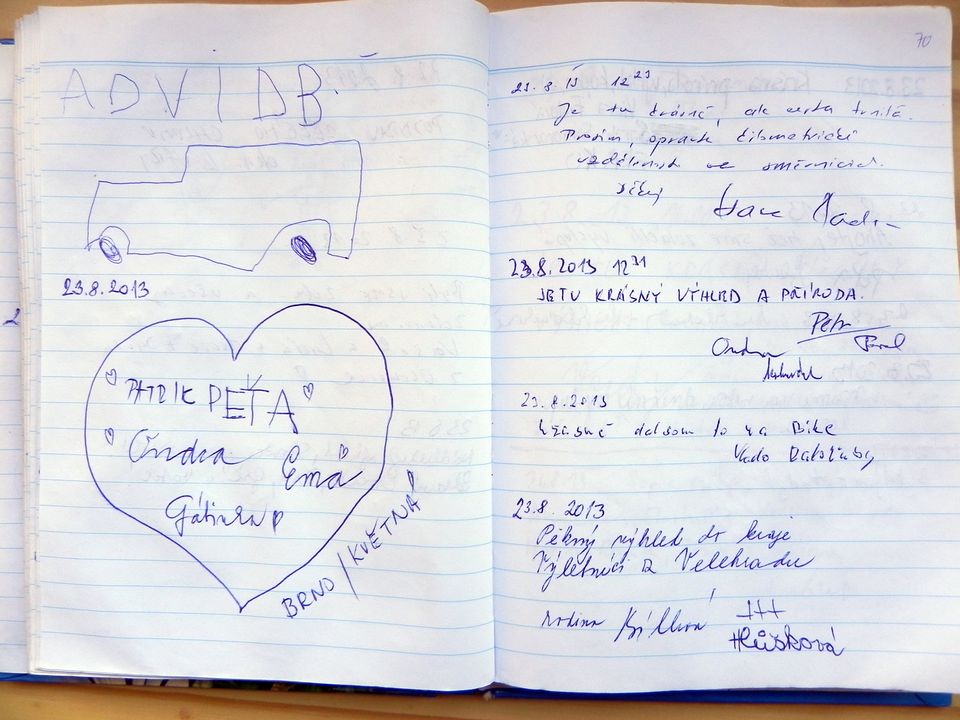 ADVIDB
23.8.2013
PATRIK PEŤA
Ondra Ema
BRNO/KVĚTNÁ
70
23.8 13 12 23
Je tu krásně, ale cesta trnitá.
Prosím, opravte kilometrické
vzdálenosti ve směrnicích.
23.8.2013 12 31
JETU KRÁSNÝ VÝHLED A PŘÍRODA.
Petr
Ondra Pavel
23.8.2013
úžasné dal som to na Bike
23.8.2013
Pěkný výhled do kraje
Výletníci z Velehradu
rodina
Hlůšková